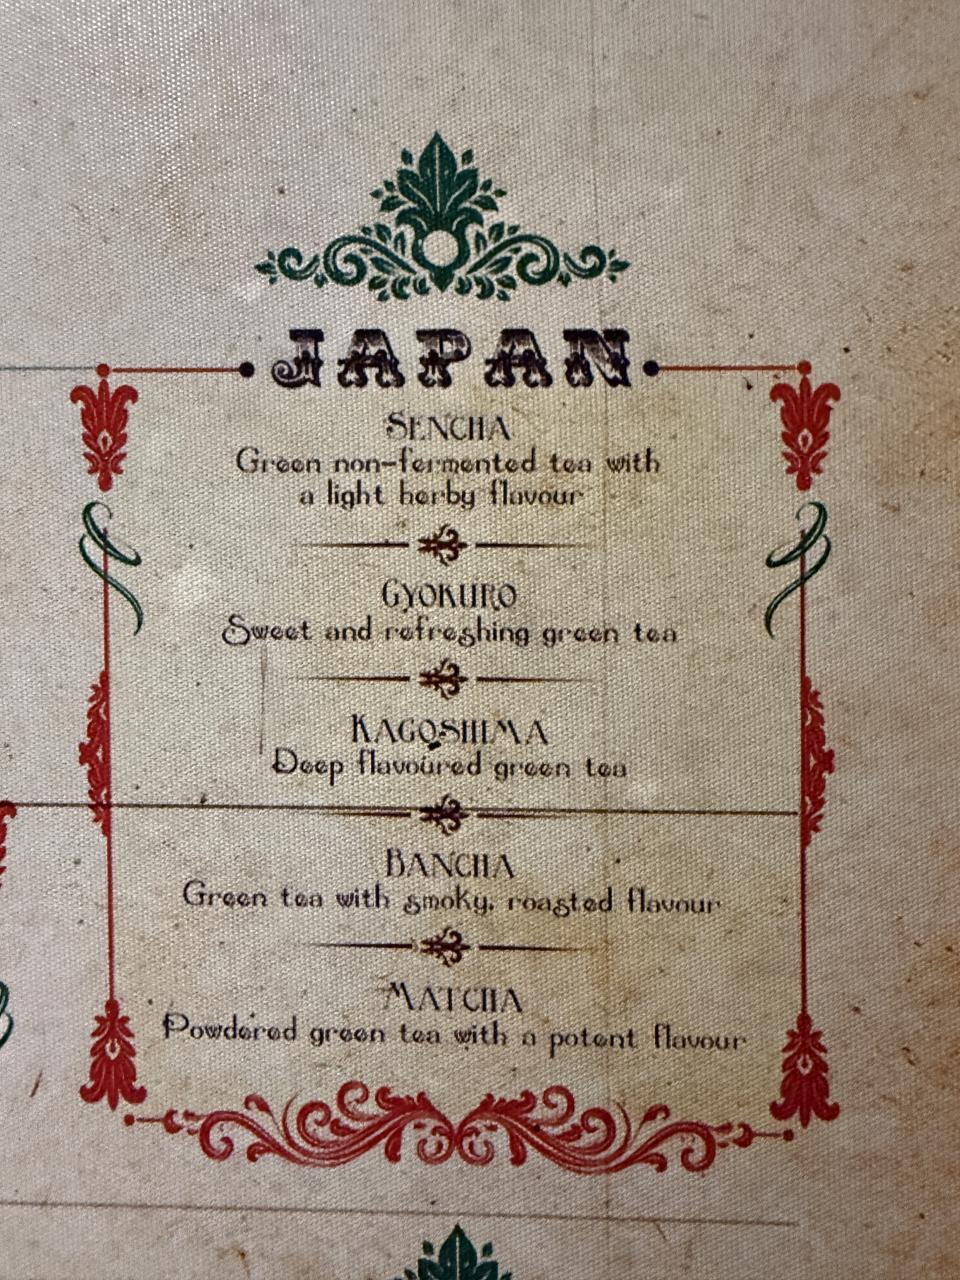 JAPAN
SENCHA
Green non-fermented tea with
a light herby flavour
GYOKURO
Sweet and refreshing green tea
KAGOSHIMA
Deep flavoured green tea
BANCHA
Green tea with smoky, roasted flavour
MATCHA
Powdered green tea with a potent flavour